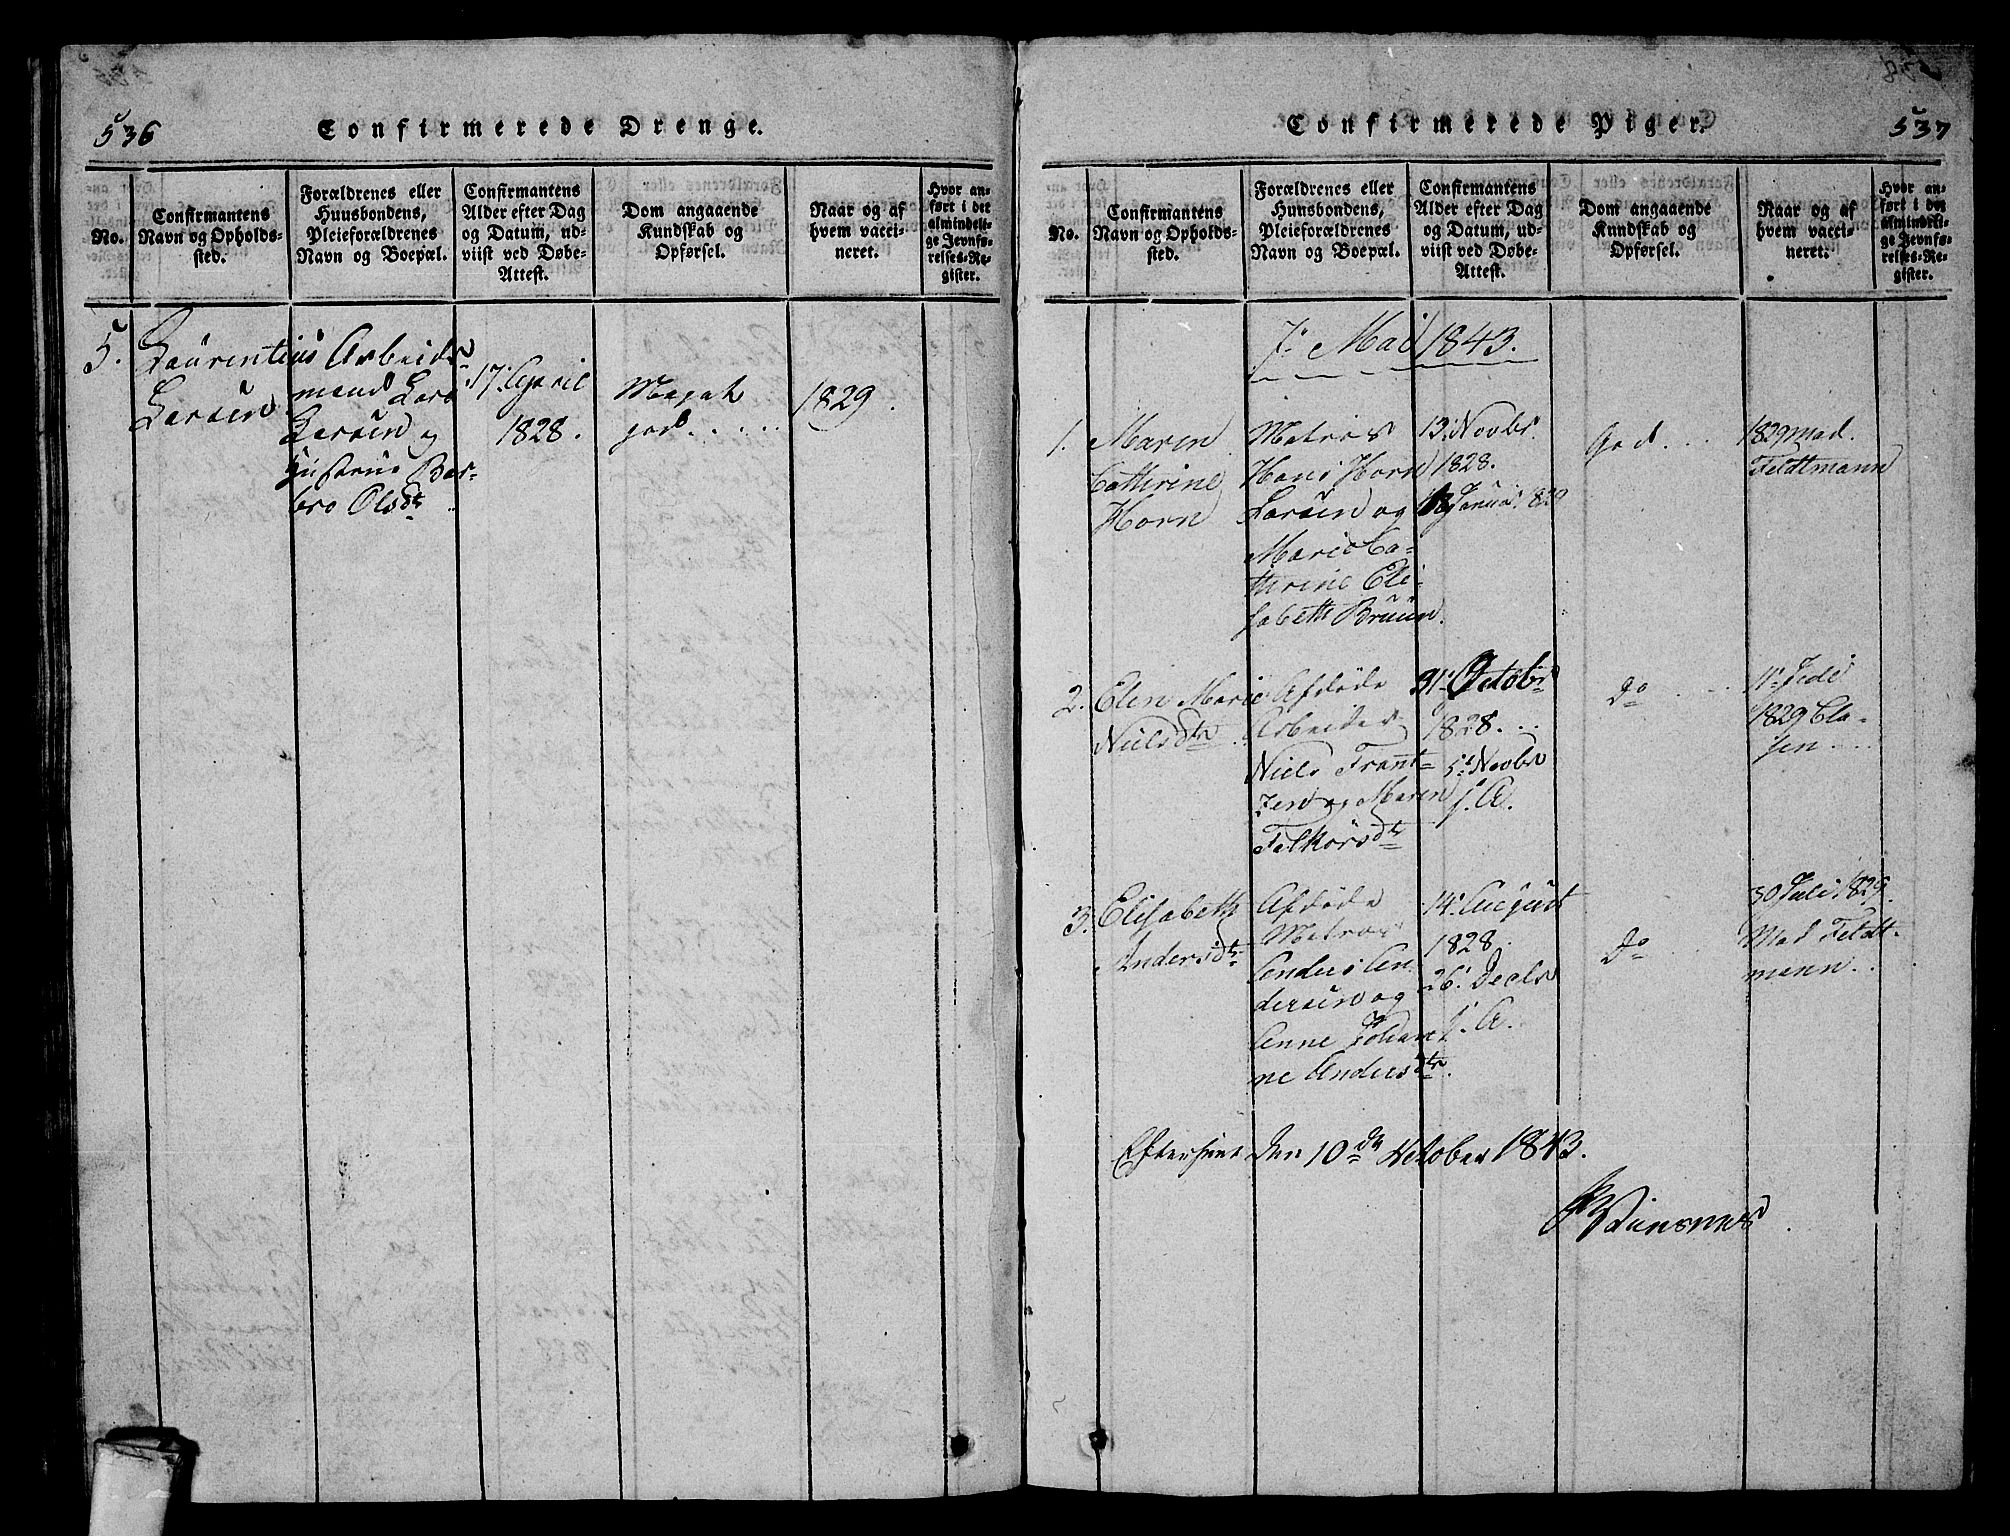 536
Confirmerede Drenge.
No.
Confirmantens
Navn og Opholds-
sted.
Forældrenes eller
Huusbondens,
Pleieforældrenes
Navn og Boepæl.
Confirmantens
Alder efter Dag
og Datum, ud-
viist ved Døbe-
Attest.
Dom angaaende
Kundskab og
Opførsel.
Naar og af
hvem vacci-
neret.
Hvor an-
ført i det
almindeli-
ge Jevnfø-
relses-Re-
gister.
5.
Laurentius
Larsen
Arbeids
mand Lars
Larsen og
Hustrue Bar-
bro Olsdtr
17. April
1828.
Meget
god.....
1829.
537
Confirmerede Piger.
No.
Confirmantens
Navn og Opholds-
sted.
Forældrenes eller
Huusbondens,
Pleieforældrenes
Navn og Boepæl.
Confirmantens
Alder efter Dag
og Datum, ud-
viist ved Døbe-
Attest.
Dom angaaende
Kundskab og
Opførsel.
Naar og af
hvem vacci-
neret.
Hvor an-
ført i det
almindeli-
ge Jevnfø-
relses-Re-
gister.
7. Mai 1843.
1.
Maren
Cathrine
Horn
Matros
Hans Horn
Larsen og
Marie Ca-
thrine Eli-
sabeth Bruun.
13. Novbr.
1828.
18 Januar 1829
God...
1829 Mad.
Feldtmann
2.
Elen Marie
Nielsdtr
Afdøde
Arbeider
Niels Frant-
zen og Maren
Falkørsdtr
31. Octobr
1828...
5. Novbr
s. A.
Do
11. Juli
1829 Cla-
sen....
3.
Elisabeth
Andersdtr
Afdøde
Matros
Anders An-
dersen og
Anne Johan-
ne Andersdtr.
14. August
1828.
26. Decbr
s. A.
Do
30 Juli 1829.
Mad Feldt-
mann..
Efterseet den 10de October 1843.